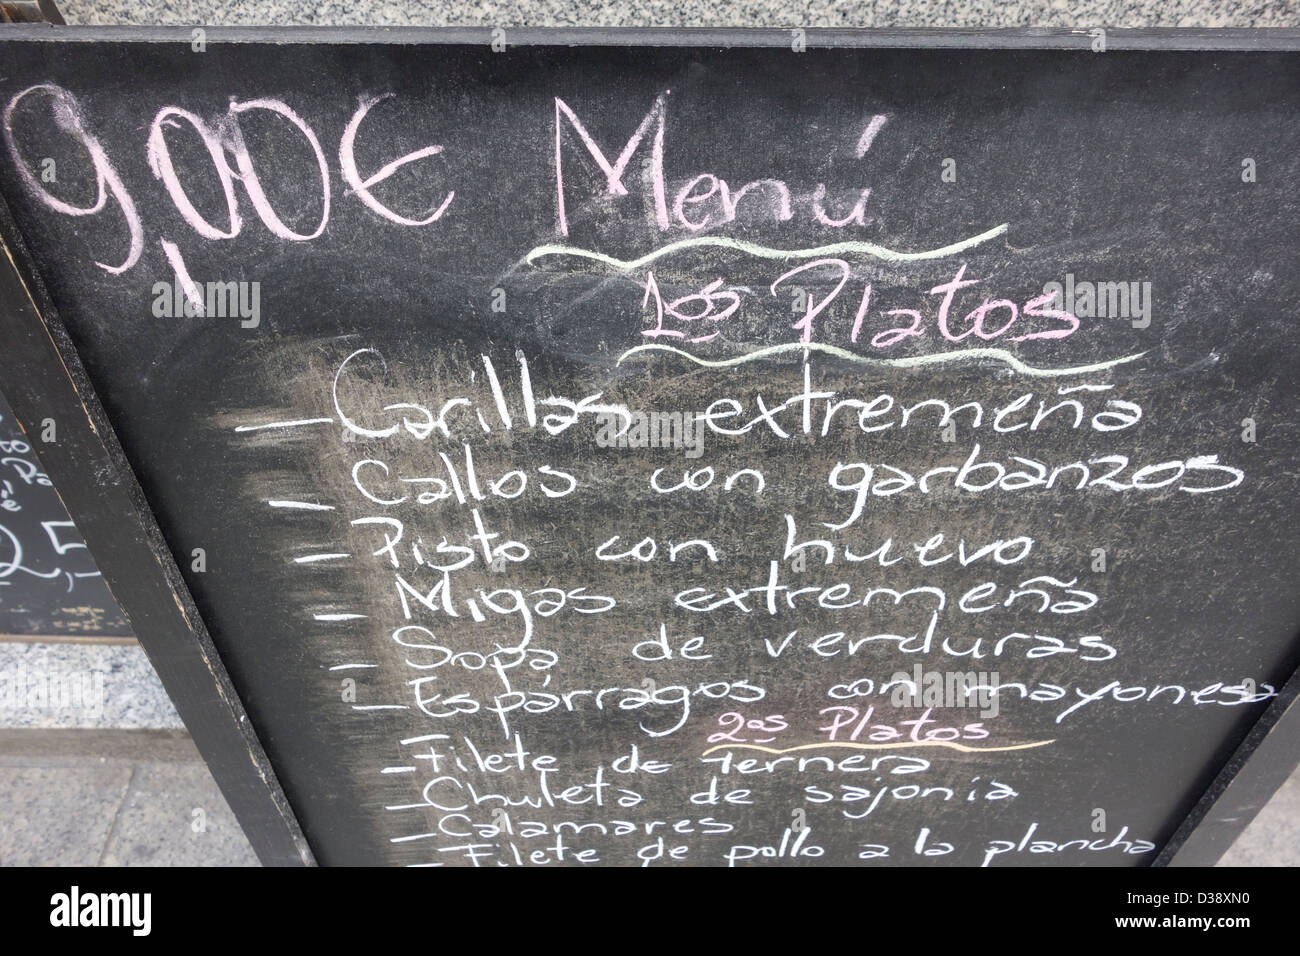 9,00€ Menú
1os Platos
- Carillas extremeña
- Callos con garbanzos
- Pisto con huevo
- Migas extremeña
- Sopa de verduras
- Espárragos con mayonesa
2os Platos
- Filete de ternera
- Chuleta de sajonia
- Calamares
- Filete de pollo a la plancha
to
Pa
é
2,5
alamy
Image ID: D38XN0
www.alamy.com